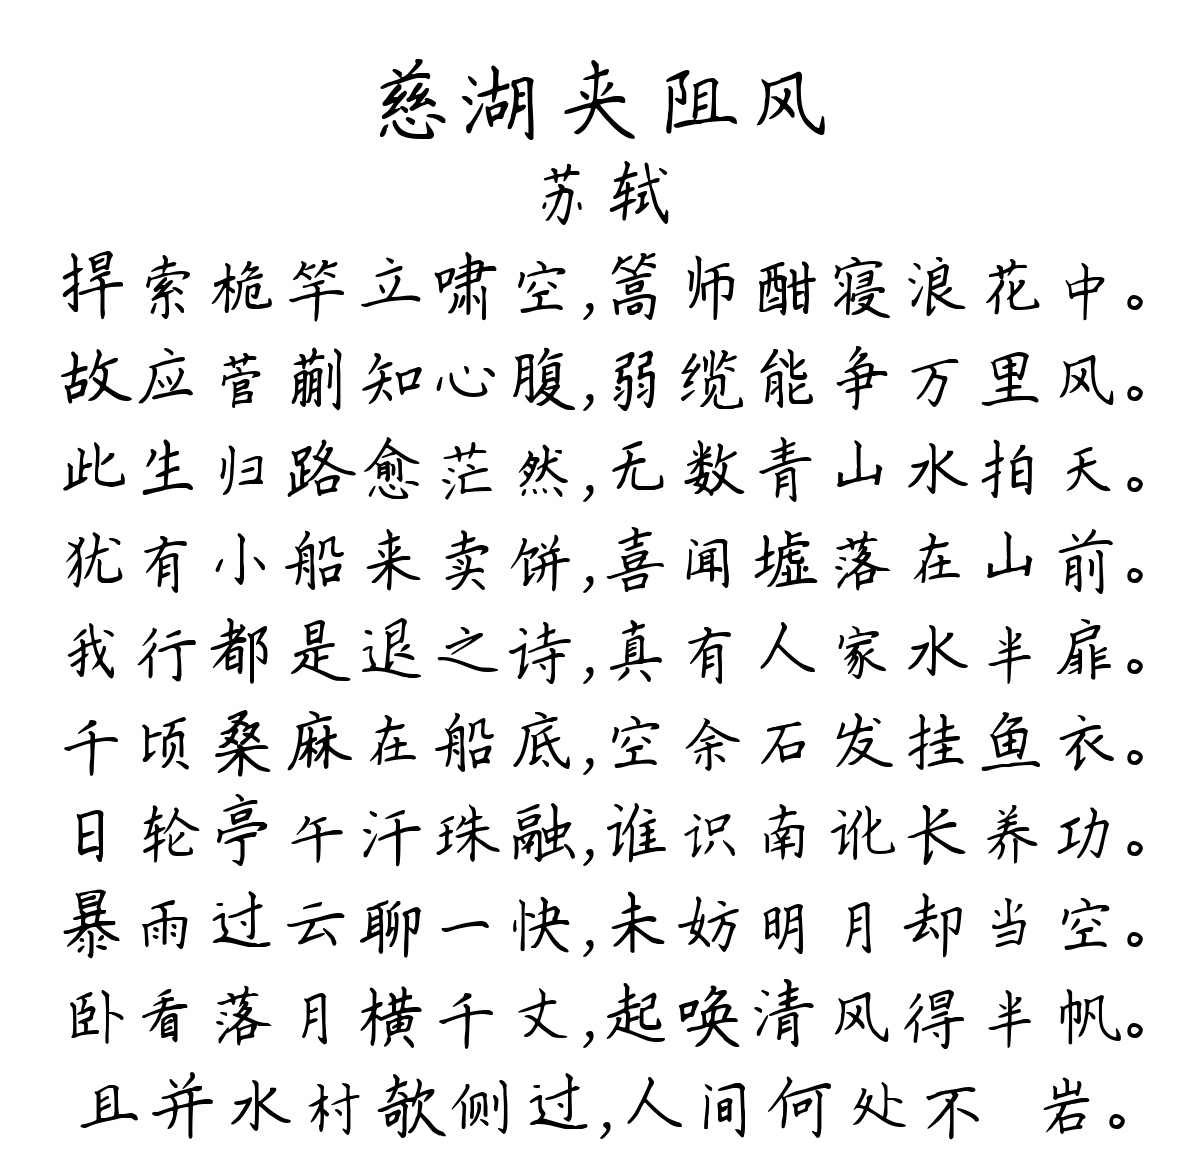 慈湖夹阻风
苏轼
捍索桅竿立啸空,篙师酣寝浪花中。
故应菅蒯知心腹,弱缆能争万里风。
此生归路愈茫然,无数青山水拍天。
犹有小船来卖饼,喜闻墟落在山前。
我行都是退之诗,真有人家水半扉。
千顷桑麻在船底,空余石发挂鱼衣。
日轮亭午汗珠融,谁识南讹长养功。
暴雨过云聊一快,未妨明月却当空。
卧看落月横千丈,起唤清风得半帆。
且并水村欹侧过,人间何处不 岩。